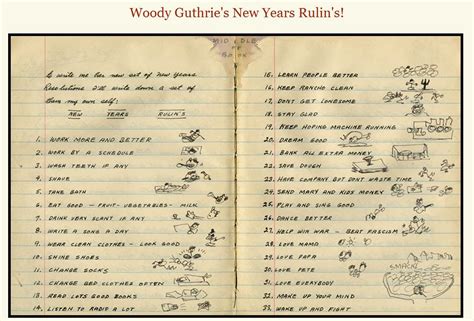 Woody Guthrie's New Years Rulin's!
MIDDLE
OF
BOOK
New Years
Resolutions I'll write down a set of
them my own self:
NEW YEARS RULIN'S
1. WORK MORE AND BETTER
2. WORK BY A SCHEDULE
3. WASH TEETH IF ANY
4. SHAVE
5. TAKE BATH
6. EAT GOOD - FRUIT - VEGETABLES - MILK
7. DRINK VERY SCANT IF ANY
8. WRITE A SONG A DAY
9. WEAR CLEAN CLOTHES - LOOK GOOD
10. SHINE SHOES
11. CHANGE SOCKS
12. CHANGE BED CLOTHES OFTEN
13. READ LOTS GOOD BOOKS
14. LISTEN TO RADIO A LOT
15. LEARN PEOPLE BETTER
16. KEEP RANCHO CLEAN
17. DONT GET LONESOME
18. STAY GLAD
19. KEEP HOPING MACHINE RUNNING
20. DREAM GOOD
21. BANK ALL EXTRA MONEY
22. SAVE DOUGH
23. HAVE COMPANY BUT DONT WASTE TIME
24. SEND MARY AND KIDS MONEY
25. PLAY AND SING GOOD
26. DANCE BETTER
27. HELP WIN WAR - BEAT FASCISM
28. LOVE MAMA
29. LOVE PAPA
30. LOVE PETE
31. LOVE EVERYBODY
32. MAKE UP YOUR MIND
33. WAKE UP AND FIGHT
SMACK!